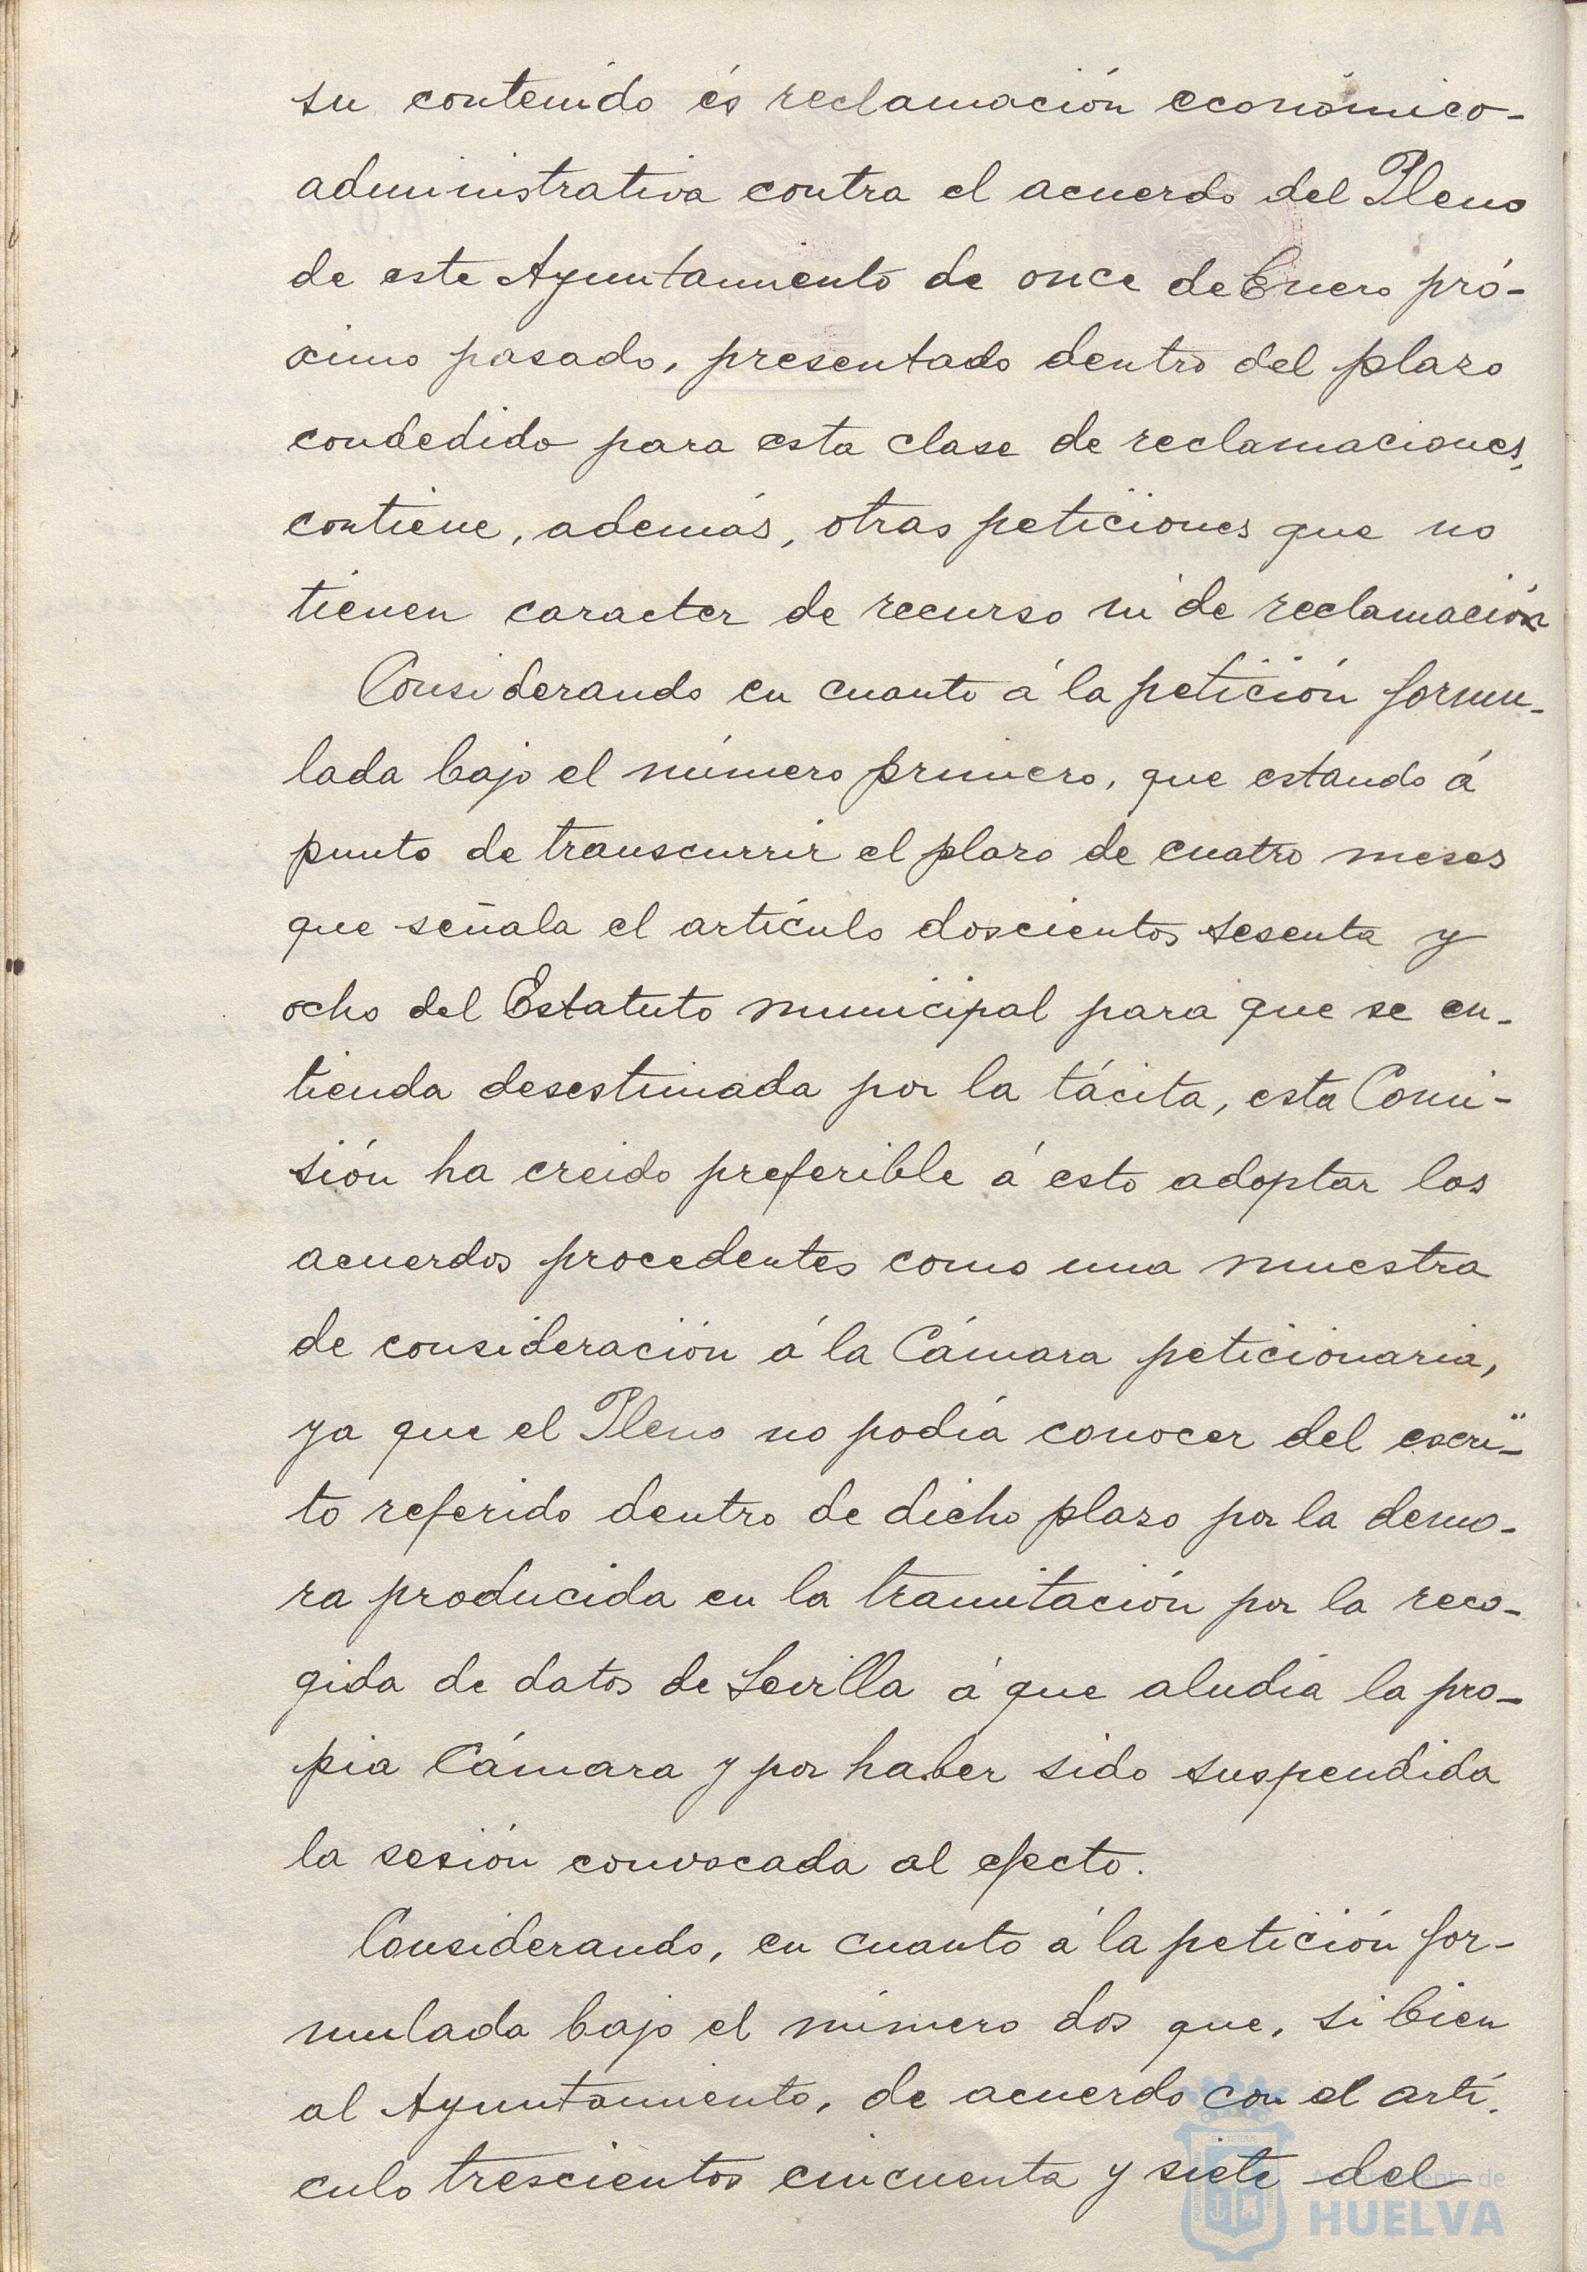 su contenido és reclamación económico-
administrativa contra el acuerdo del Pleno
de este Ayuntamiento de once de Enero pró-
ximo pasado, presentado dentro del plazo
condedido para esta clase de reclamaciones,
contiene, además, otras peticiones que no
tienen caracter de recurso ni de reclamación
Considerando en cuanto á la petición formu-
lada bajo el número primero, que estando á
punto de transcurrir el plazo de cuatro meses
que señala el artículo doscientos sesenta y
ocho del Estatuto municipal para que se en-
tienda desestimada por la tácita, esta Comi-
sión ha creido preferible á esto adoptar los
acuerdos procedentes como una muestra
de consideración á la Cámara peticionaria,
ya que el Pleno no podía conocer del escri-
to referido dentro de dicho plazo por la demo-
ra producida en la tramitación por la reco-
gida de datos de Sevilla á que aludía la pro-
pia Cámara y por haber sido suspendida
la sesión convocada al efecto.
Considerando, en cuanto á la petición for-
mulada bajo el número dos que, si bien
al Ayuntamiento, de acuerdo con el artí-
culo trescientos cincuenta y siete del
Ayuntamiento de
HUELVA